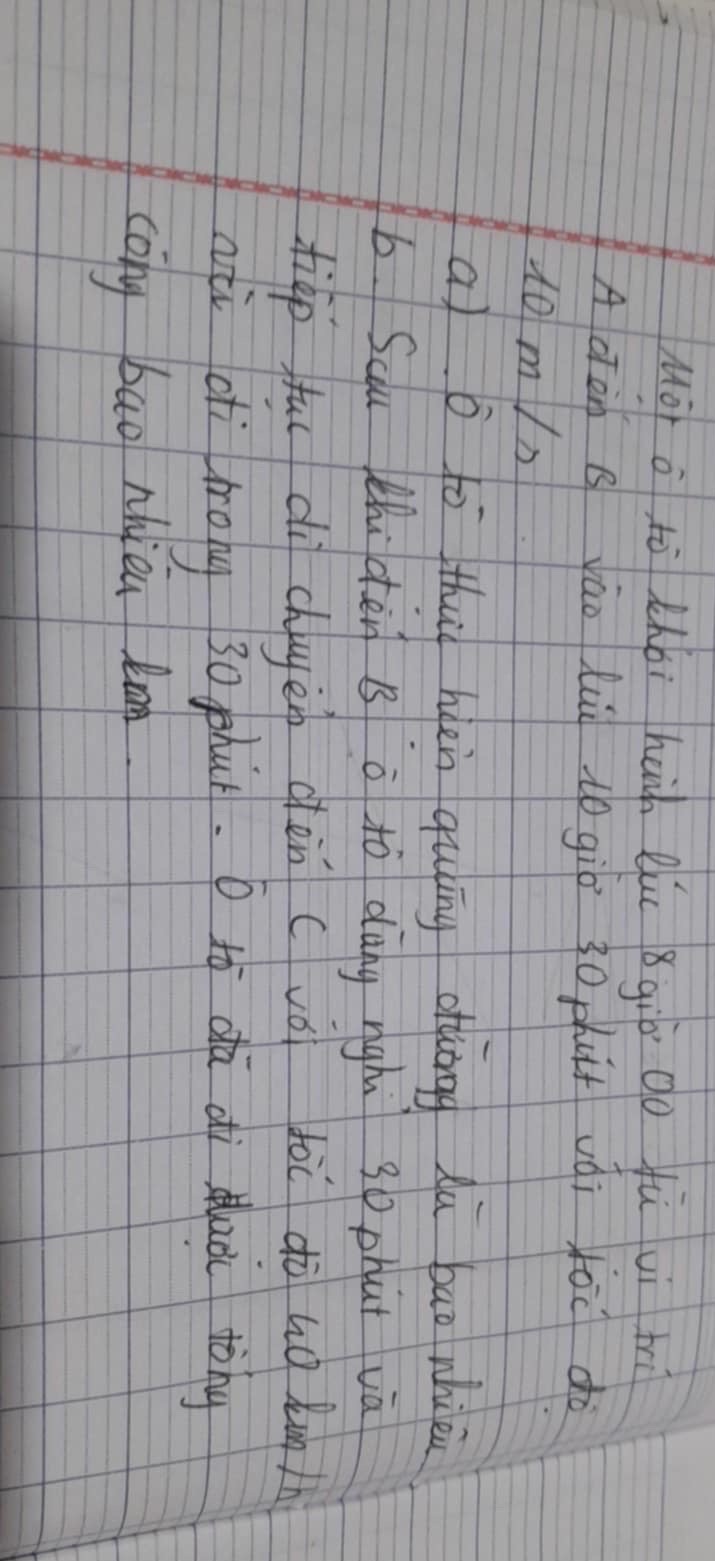 Một ô tô khởi hành lúc 8 giờ 00 từ vị trí
A đến B vào lúc 10 giờ 30 phút với tốc độ
10 m/s.
a) Ô tô thực hiện quãng đường là bao nhiêu
b. Sau khi đến B ô tô dừng nghỉ 30 phút và
tiếp tục di chuyển đến C với tốc độ 40 km/h
nữa đi trong 30 phút. Ô tô đã đi được tổng
cộng bao nhiêu km.